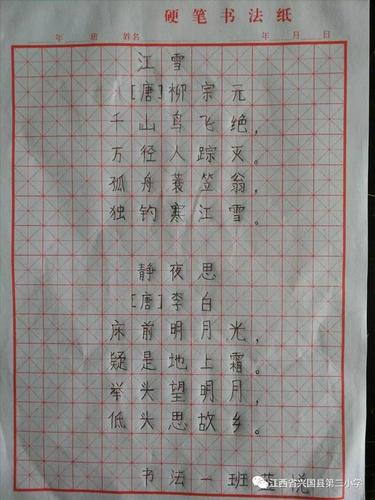 硬笔书法纸
年 班 姓名 年 月 日
江雪
[唐]柳宗元
千山鸟飞绝，
万径人踪灭。
孤舟蓑笠翁，
独钓寒江雪。
静夜思
[唐]李白
床前明月光，
疑是地上霜。
举头望明月，
低头思故乡。
书法一班
江西省兴国县第二小学